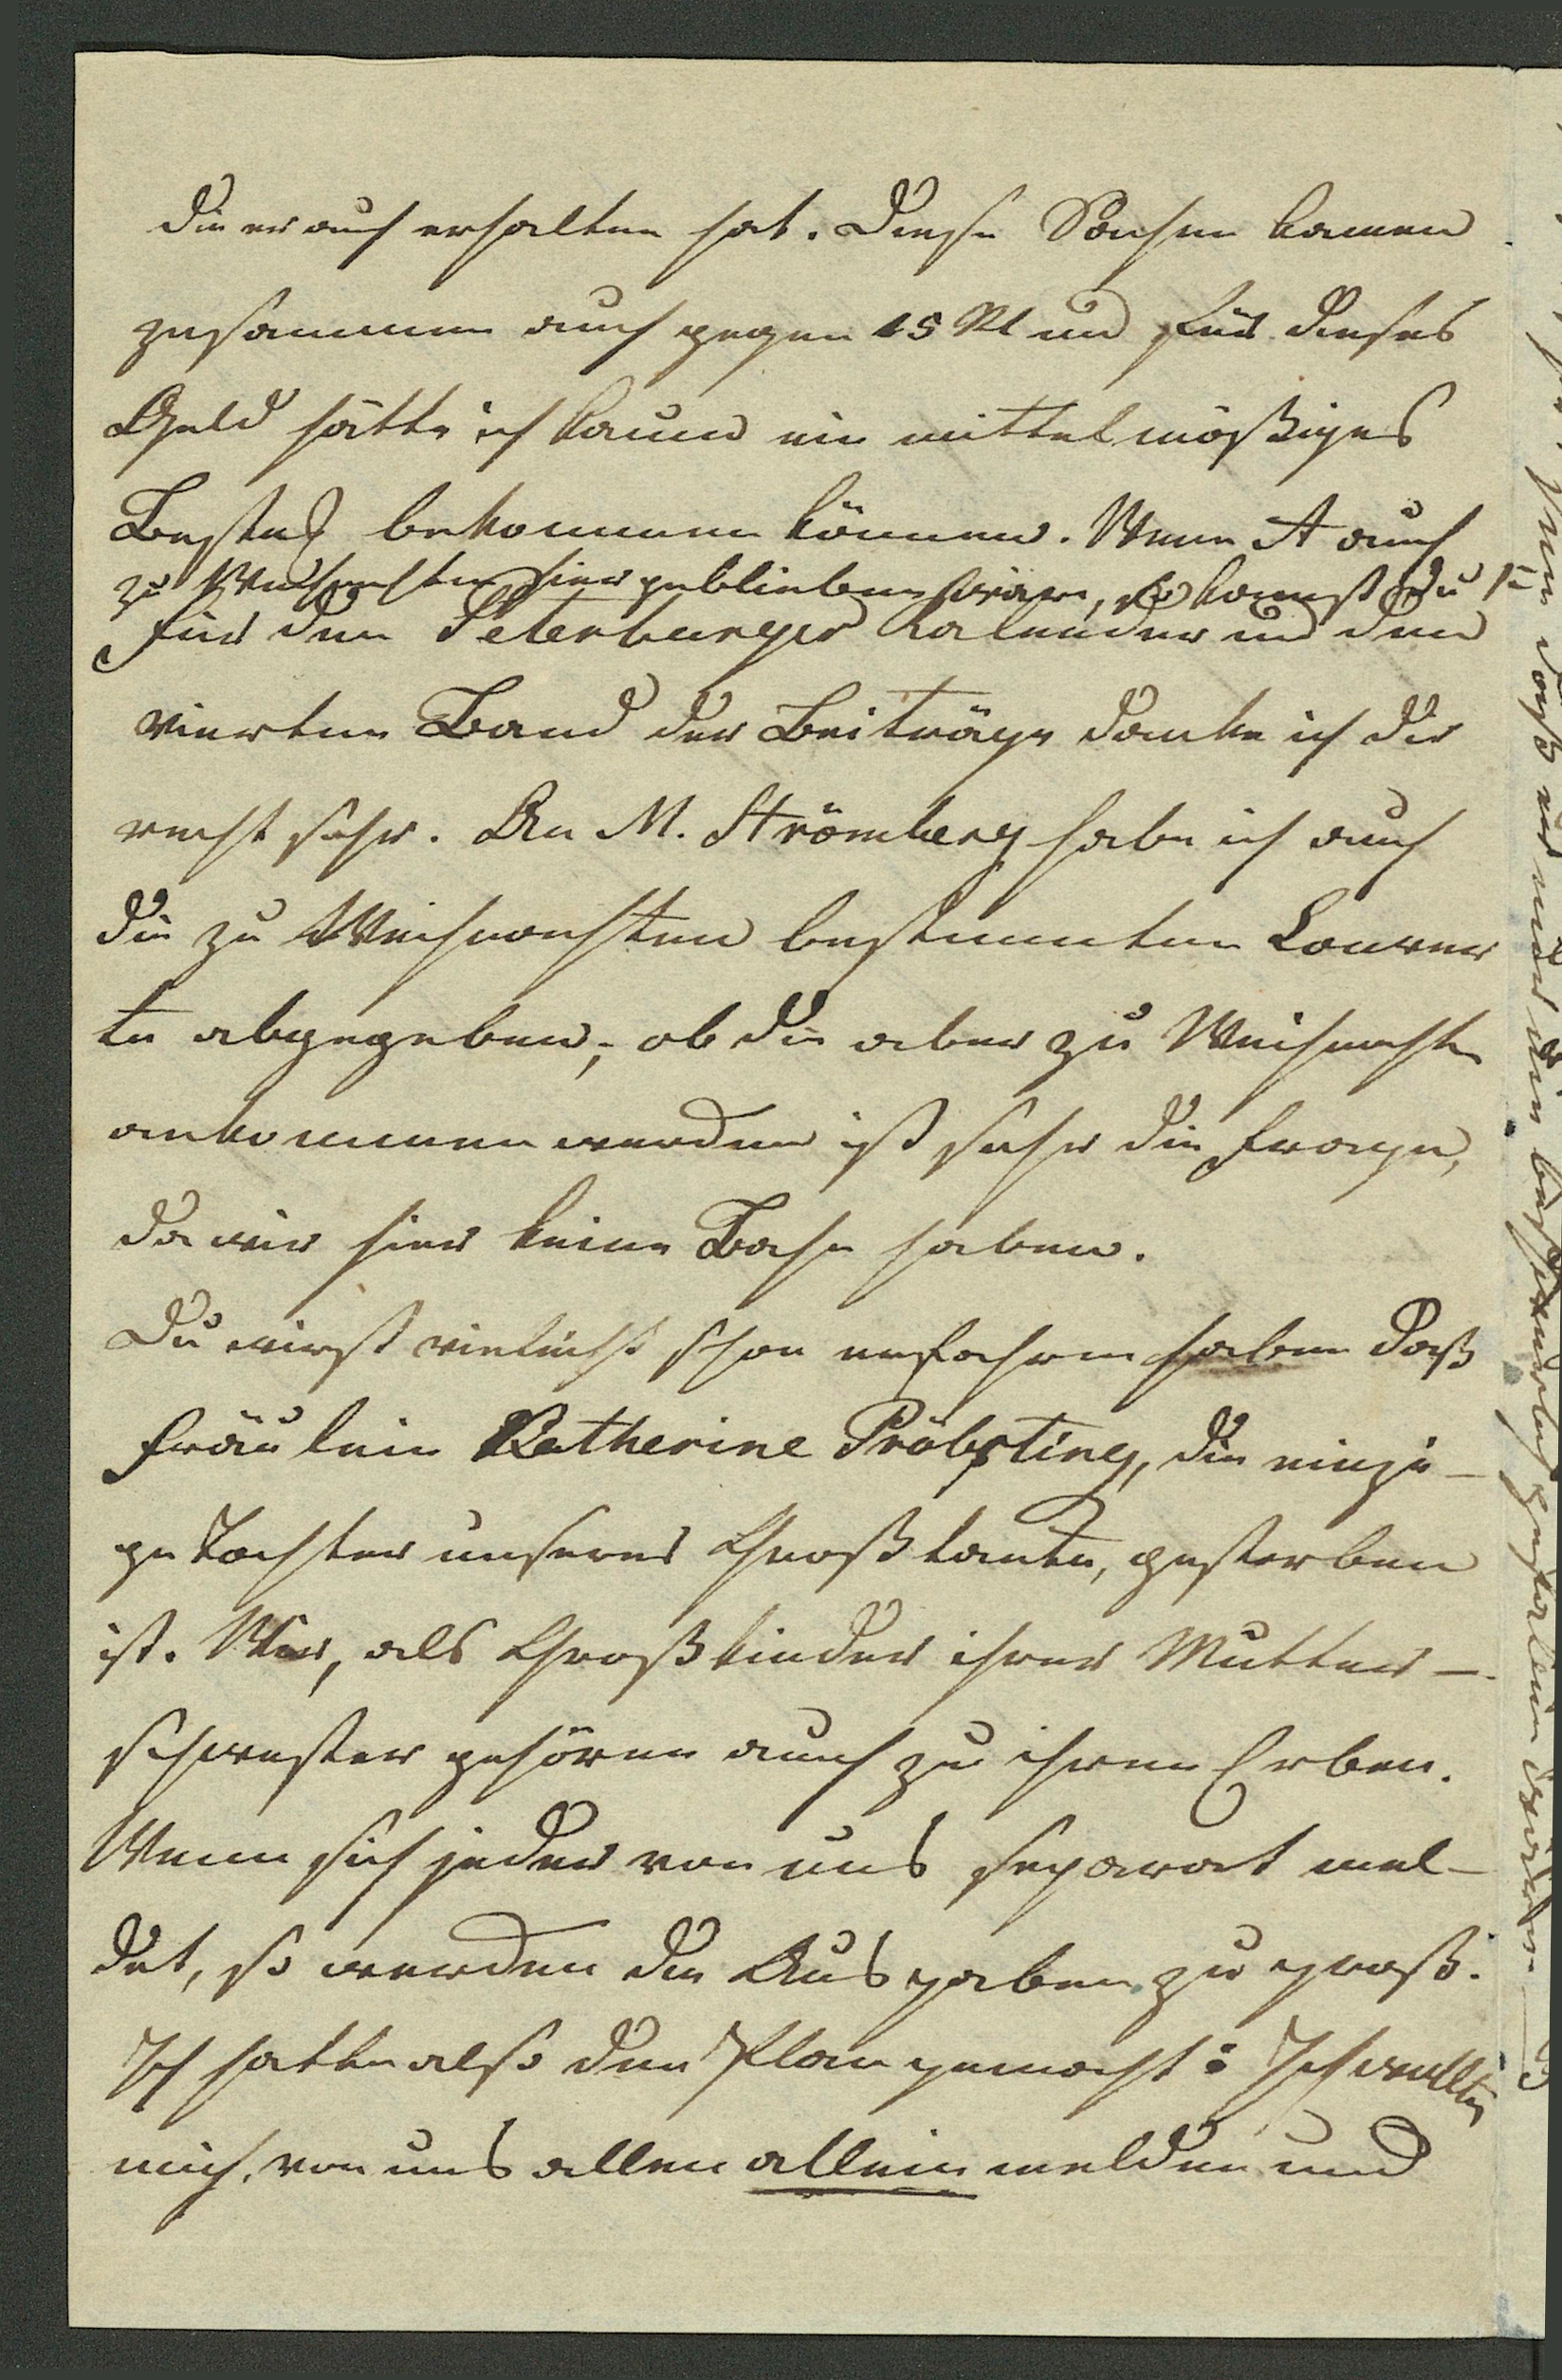 die er auch erhalten hat. Diese Sachen kamen
zusammen auch gegen 15 Rl und für dieses
Geld hätte ich kaum ein mittelmäßiges
Besteck bekommen können. Wenn A auch
zu Weihnachten hier geblieben wäre, so kamst du
für den Peterburger Kalender und den
vierten Band der Beiträge danke ich dir
recht sehr. An M. Strömberg habe ich auch
die zu Weihnachten bestimmten Couver
te abgegeben, ob die aber zu Weihnachten
ankommen werden ist sehr die Frage,
da wir hier keine Bahn haben.
Du wirst vieleicht schon erfahren haben daß
Fräulein Katherine Pröbsting, die einzi-
ge Tochter unserer Großtante, gestorben
ist. Wir, als Großkinder ihrer Mutter-
schwester gehören auch zu ihren Erben.
Wenn sich jeder von uns separat mel-
det, so werden die Ausgaben zu groß.
Ich hatte also den Plan gemacht: Ich wollte
mich, von uns allen allein melden und